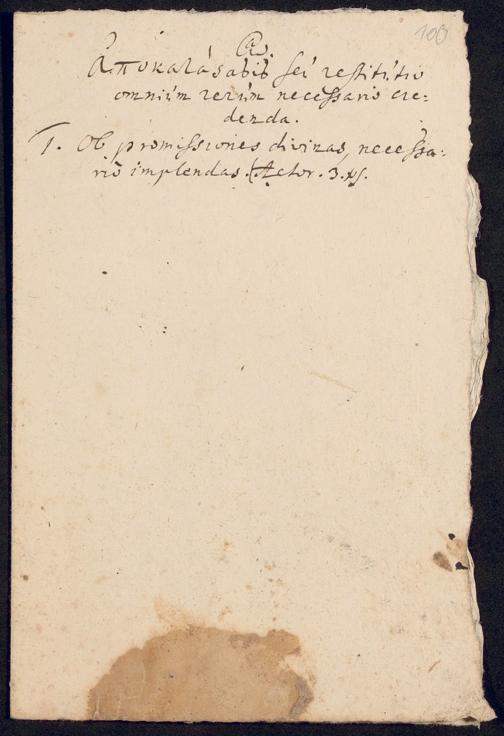 100
Aποκατάσασις sei restitutio
omnium rerum necessario cre=
denda.
1. Ob promissiones divinas, necessa=
rio implendas. (Actor. 3.